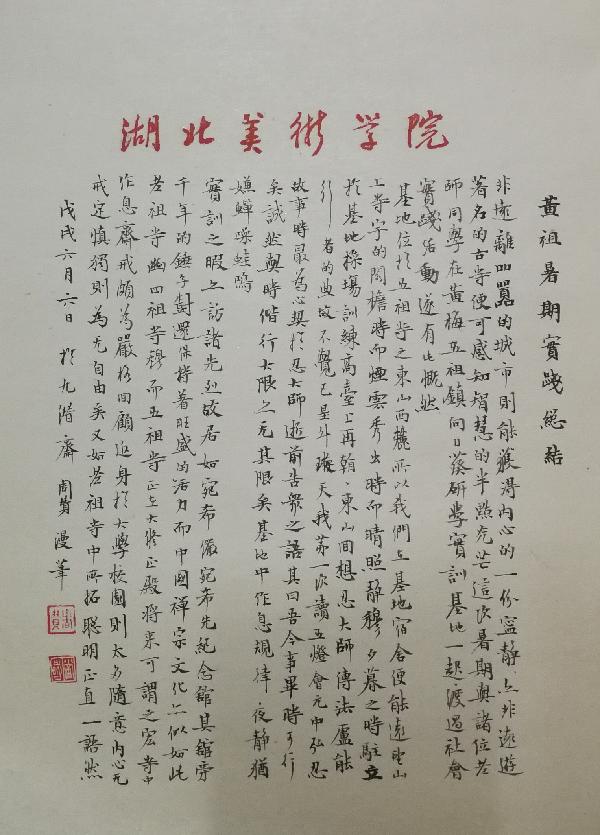 湖北美術学院
黃祖暑期實踐總結
非遠離喧囂的城市則能獲得內心的一份寧靜亦非遠遊
著名的古寺便可感知智慧的半點光芒這次暑期與諸位老
師同學在黃梅五祖鎮向日葵研學實訓基地一起渡過社會
實踐活動遂有此慨然
基地位於五祖寺之東山西麓所以我們在基地宿舍便能遠望山
上寺宇的閣檐時而煙雲秀出時而晴照靜穆夕暮之時駐立
於基地操場訓練高臺上再翰東山回想忍大師傳法盧能
行者的典故不覺已星斗滿天我第一次讀五燈會元中弘忍
故事時最為心契於忍大師逝前告眾之語其曰吾今事畢時可行
矣誠然與時偕行大限之无其限矣基地中作息規律夜靜猶
嫌蟬噪蛙鳴
實訓之暇亦訪諸先烈故居如宛希儼宛希先紀念舘其舘旁
千年的銀子樹還保持著旺盛的活力而中國禪宗文化亦似如此
老祖寺幽四祖寺穆而五祖寺正在大修正殿將來可謂之宏寺中
作息齋戒頗為嚴格回顧洎身於大學校園則太多隨意內心无
戒定慎獨則為无自由矣又如老祖寺中所拓聰明正直一語然
戊戌六月六日 於九階齋 周贊漫筆